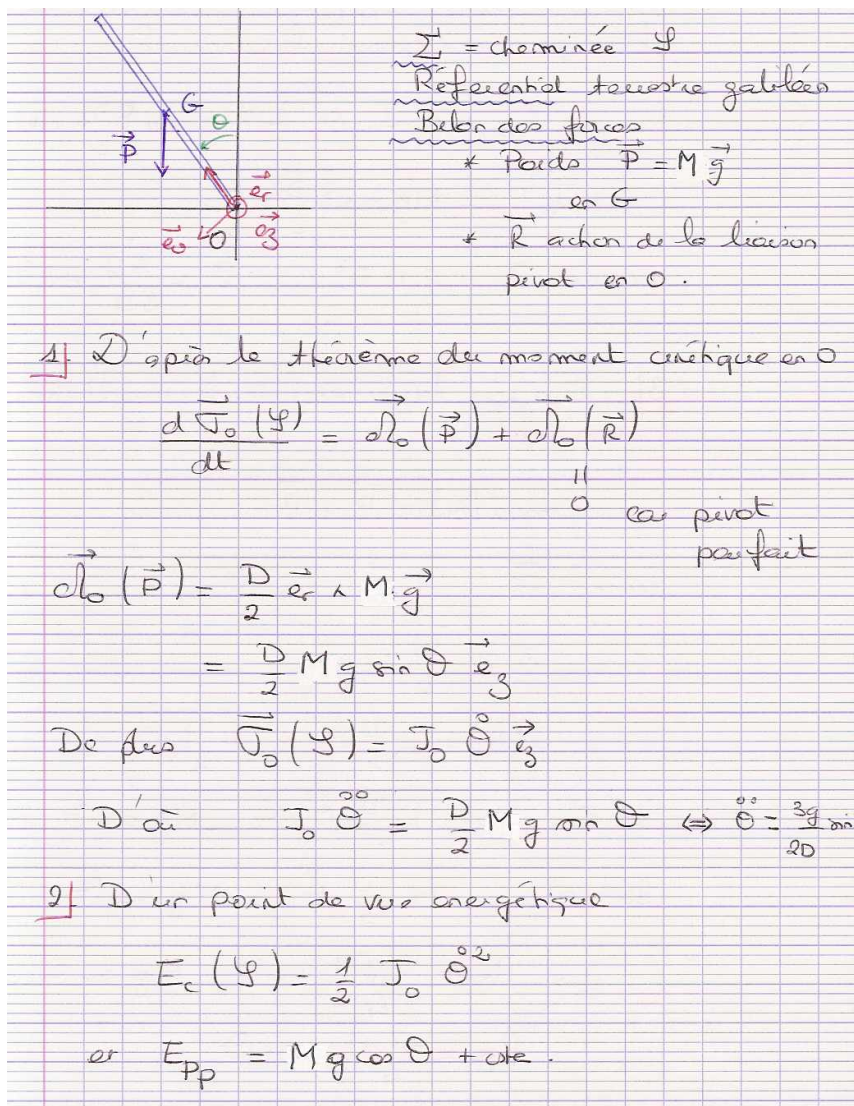 Σ = cheminée 𝒮
Référentiel terrestre galiléen
Bilan des forces
* Poids P⃗ = M g⃗
en G
* R⃗ action de la liaison
pivot en O.
G
θ
P⃗
e⃗r
e⃗θ
O
e⃗z
1) D'après le théorème du moment cinétique en O
dσ⃗o (𝒮) / dt = ℳ⃗o (P⃗) + ℳ⃗o (R⃗)
=
0 car pivot
parfait
ℳ⃗o (P⃗) = D/2 e⃗r ∧ M. g⃗
= D/2 M g sin θ e⃗z
De plus σ⃗o (𝒮) = Jo θ̇ e⃗z
D'où Jo θ̈ = D/2 M g sin θ ⇔ θ̈ = 3g/2D sin
2) D'un point de vue energétique
Ec (𝒮) = 1/2 Jo θ̇²
et Epp = M g cos θ + cste.